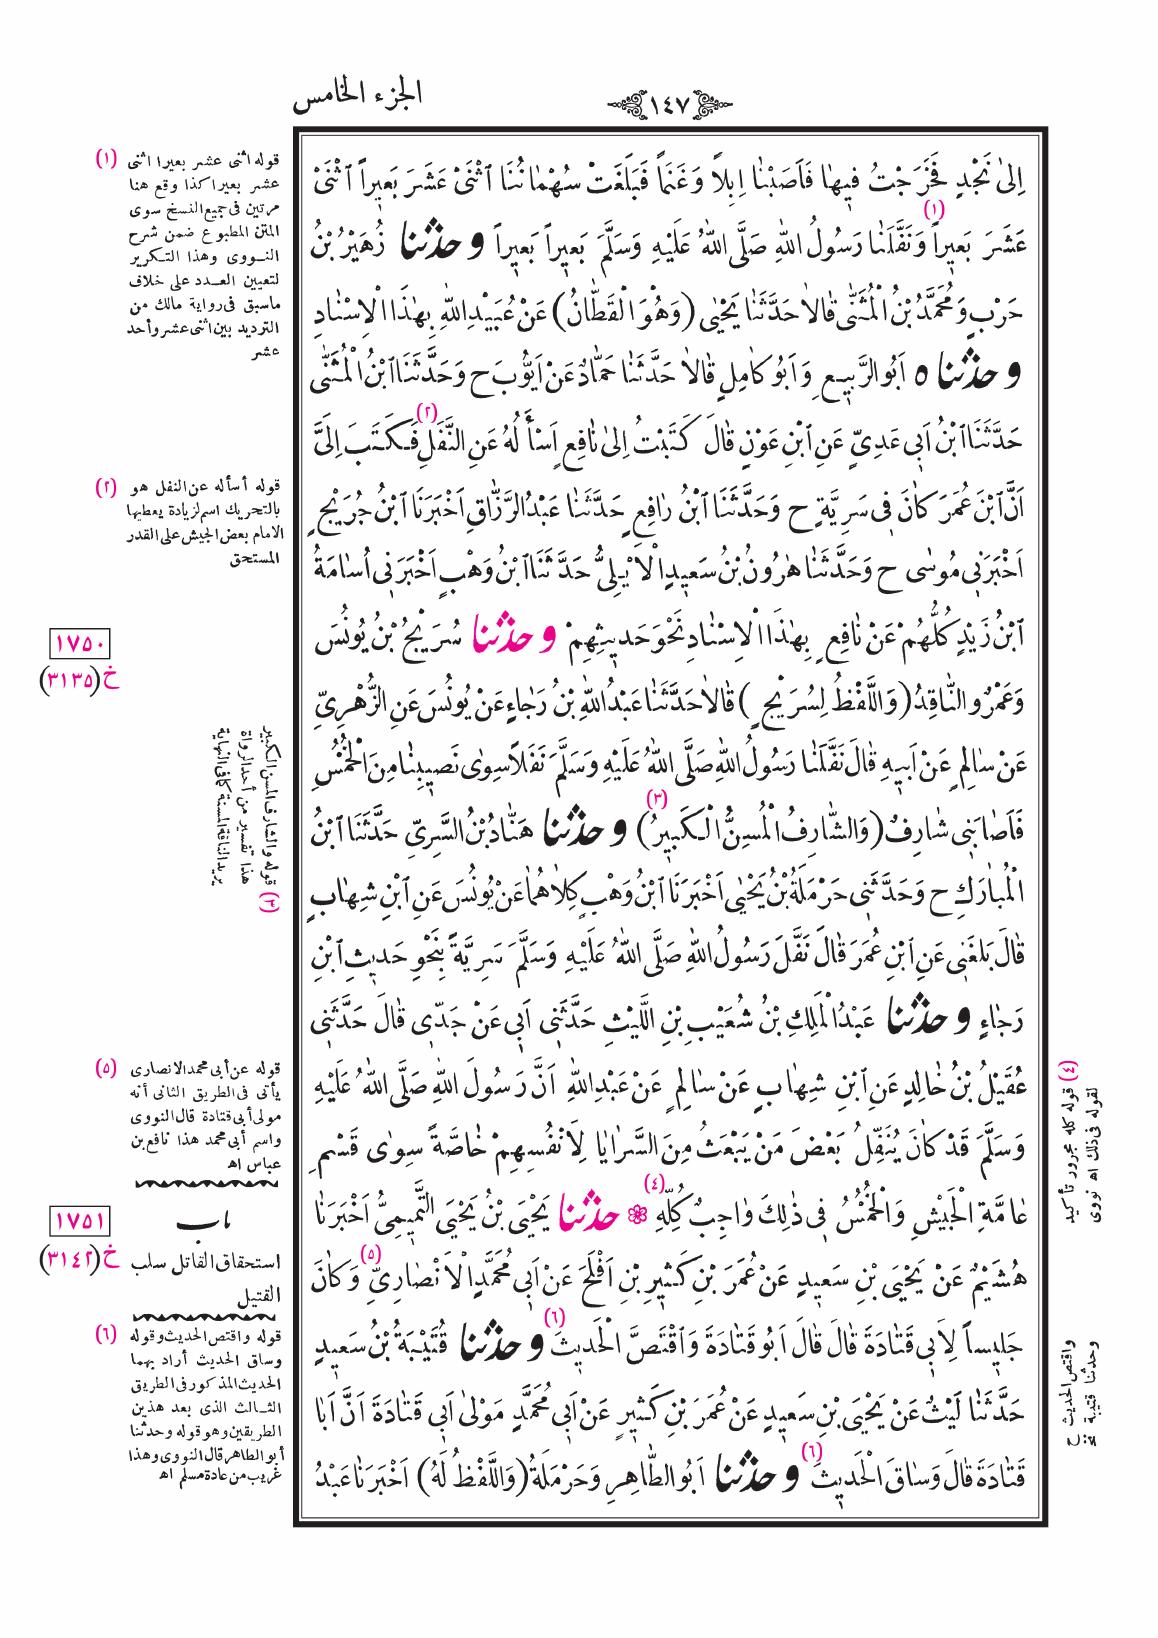 ١٤٧
الجزء الخامس
اِلىٰ نَجْدٍ فَخَرَجْتُ فيهٰا فَاَصَبْنٰا اِبِلاً وَغَنَماً فَبَلَغَتْ سُهْمٰانُنَا اثْنَىْ عَشَرَ بَعيراً اثْنَىْ
عَشَرَ بَعيراً (١) وَنَفَّلَنٰا رَسُولُ اللهِ صَلَّى اللهُ عَلَيْهِ وَسَلَّمَ بَعيراً بَعيراً وحدثنا زُهَيْرُ بْنُ
حَرْبٍ وَمُحَمَّدُ بْنُ الْمُثَنّٰى قٰالاٰ حَدَّثَنٰا يَحْيٰى (وَهُوَ الْقَطّٰانُ) عَنْ عُبَيْدِ اللهِ بِهٰذَا الْاِسْنٰادِ
وحدثناه اَبُو الرَّبيعِ وَاَبُو كٰامِلٍ قٰالاٰ حَدَّثَنٰا حَمّٰادٌ عَنْ اَيُّوبَ ح وَحَدَّثَنَا ابْنُ الْمُثَنّٰى
حَدَّثَنَا ابْنُ اَبى عَدِىٍّ عَنِ ابْنِ عَوْنٍ قٰالَ كَتَبْتُ اِلىٰ نٰافِعٍ اَسْأَلُهُ عَنِ النَّفَلِ (٢) فَكَتَبَ اِلَىَّ
اَنَّ ابْنَ عُمَرَ كٰانَ فى سَرِيَّةٍ ح وَحَدَّثَنَا ابْنُ رٰافِعٍ حَدَّثَنٰا عَبْدُ الرَّزّٰاقِ اَخْبَرَنَا ابْنُ جُرَيْجٍ
اَخْبَرَنى مُوسٰى ح وَحَدَّثَنٰا هٰرُونُ بْنُ سَعيدٍ الْاَيْلِىُّ حَدَّثَنَا ابْنُ وَهْبٍ اَخْبَرَنى اُسٰامَةُ
ابْنُ زَيْدٍ كُلُّهُمْ عَنْ نٰافِعٍ بِهٰذَا الْاِسْنٰادِ نَحْوَ حَديثِهِمْ وحدثنا سُرَيْجُ بْنُ يُونُسَ
وَعَمْرٌو النّٰاقِدُ (وَاللَّفْظُ لِسُرَيْجٍ) قٰالاٰ حَدَّثَنٰا عَبْدُ اللهِ بْنُ رَجٰاءٍ عَنْ يُونُسَ عَنِ الزُّهْرِىِّ
عَنْ سٰالِمٍ عَنْ اَبيهِ قٰالَ نَفَّلَنٰا رَسُولُ اللهِ صَلَّى اللهُ عَلَيْهِ وَسَلَّمَ نَفَلاً سِوٰى نَصيبِنٰا مِنَ الْخُمْسِ
فَاَصٰابَنى شٰارِفٌ (وَالشّٰارِفُ الْمُسِنُّ الْكَبيرُ) (٣) وحدثنا هَنّٰادُ بْنُ السَّرِىِّ حَدَّثَنَا ابْنُ
الْمُبٰارَكِ ح وَحَدَّثَنى حَرْمَلَةُ بْنُ يَحْيٰى اَخْبَرَنَا ابْنُ وَهْبٍ كِلاٰهُمٰا عَنْ يُونُسَ عَنِ ابْنِ شِهٰابٍ
قٰالَ بَلَغَنى عَنِ ابْنِ عُمَرَ قٰالَ نَفَّلَ رَسُولُ اللهِ صَلَّى اللهُ عَلَيْهِ وَسَلَّمَ سَرِيَّةً بِنَحْوِ حَديثِ ابْنِ
رَجٰاءٍ وحدثنا عَبْدُ الْمَلِكِ بْنُ شُعَيْبِ بْنِ اللَّيْثِ حَدَّثَنى اَبى عَنْ جَدّى قٰالَ حَدَّثَنى
عُقَيْلُ بْنُ خٰالِدٍ عَنِ ابْنِ شِهٰابٍ عَنْ سٰالِمٍ عَنْ عَبْدِ اللهِ اَنَّ رَسُولَ اللهِ صَلَّى اللهُ عَلَيْهِ
وَسَلَّمَ قَدْ كٰانَ يُنَفِّلُ بَعْضَ مَنْ يَبْعَثُ مِنَ السَّرٰايٰا لِاَنْفُسِهِمْ خٰاصَّةً سِوٰى قَسْمِ
عٰامَّةِ الْجَيْشِ وَالْخُمْسُ فى ذٰلِكَ وٰاجِبٌ كُلِّهِ (٤) حدثنا يَحْيَى بْنُ يَحْيَى التَّميمِىُّ اَخْبَرَنٰا
هُشَيْمٌ عَنْ يَحْيَى بْنِ سَعيدٍ عَنْ عُمَرَ بْنِ كَثيرِ بْنِ اَفْلَحَ عَنْ اَبى مُحَمَّدٍ الْاَنْصٰارِىِّ (٥) وَكٰانَ
جَليساً لِاَبى قَتٰادَةَ قٰالَ قٰالَ اَبُو قَتٰادَةَ وَاقْتَصَّ الْحَديثَ (٦) وحدثنا قُتَيْبَةُ بْنُ سَعيدٍ
حَدَّثَنٰا لَيْثٌ عَنْ يَحْيَى بْنِ سَعيدٍ عَنْ عُمَرَ بْنِ كَثيرٍ عَنْ اَبى مُحَمَّدٍ مَوْلىٰ اَبى قَتٰادَةَ اَنَّ اَبٰا
قَتٰادَةَ قٰالَ وَسٰاقَ الْحَديثَ (٦) وحدثنا اَبُو الطّٰاهِرِ وَحَرْمَلَةُ (وَاللَّفْظُ لَهُ) اَخْبَرَنٰا عَبْدُ
(١) قوله اثنى عشر بعيرا اثنى
عشر بعيرا كذا وقع هنا
مرتين فى جميع النسخ سوى
المتن المطبوع ضمن شرح
النووى وهذا التكرير
لتعيين العدد على خلاف
ماسبق فى رواية مالك من
الترديد بين اثنى عشر وأحد
عشر
(٢) قوله أسأله عن النفل هو
بالتحريك اسم لزيادة يعطيها
الامام بعض الجيش على القدر
المستحق
١٧٥٠
خ (٣١٣٥)
(٣) قوله والشارف المسن الكبير
هذا تفسير من أحد الرواة
يريد الناقة المسنة كما فى النهاية
(٥) قوله عن أبى محمد الانصارى
يأتى فى الطريق الثانى أنه
مولى أبى قتادة قال النووى
واسم أبى محمد هذا نافع بن
عباس اه
١٧٥١
خ (٣١٤٢)
باب
استحقاق القاتل سلب
القتيل
(٦) قوله واقتص الحديث وقوله
وساق الحديث أراد بهما
الحديث المذكور فى الطريق
الثالث الذى بعد هذين
الطريقين وهو قوله وحدثنا
أبو الطاهر قال النووى وهذا
غريب من عادة مسلم اه
(٤) قوله كله مجرور تأكيد
لقوله فى ذلك اه نووى
واقتص الحديث ح
وحدثنا قتيبة نخ